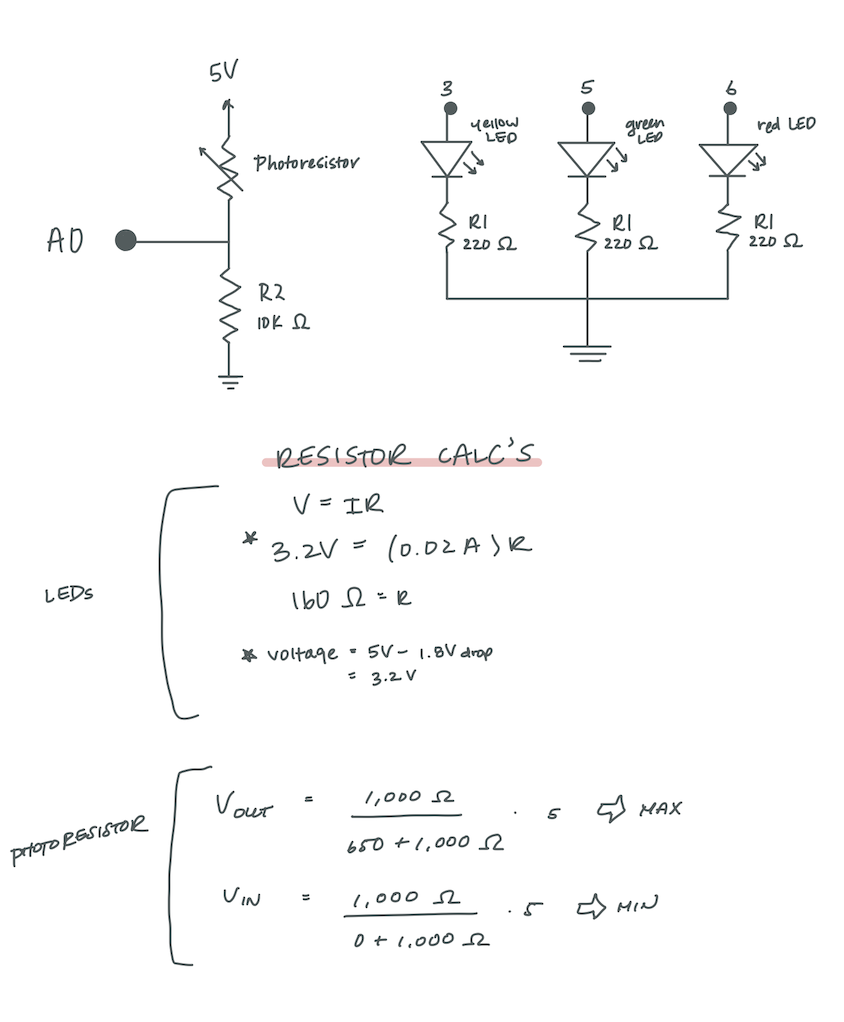 5V
Photoresistor
A0
R2
10K Ω
3
yellow
LED
R1
220 Ω
5
green
LED
R1
220 Ω
6
red LED
R1
220 Ω
RESISTOR CALC'S
LEDs
V = IR
* 3.2V = (0.02A)R
160 Ω = R
* voltage = 5V - 1.8V drop
= 3.2V
PHOTORESISTOR
VOUT = 1,000 Ω / 650 + 1,000 Ω · 5 ⇨ MAX
VIN = 1,000 Ω / 0 + 1,000 Ω · 5 ⇨ MIN